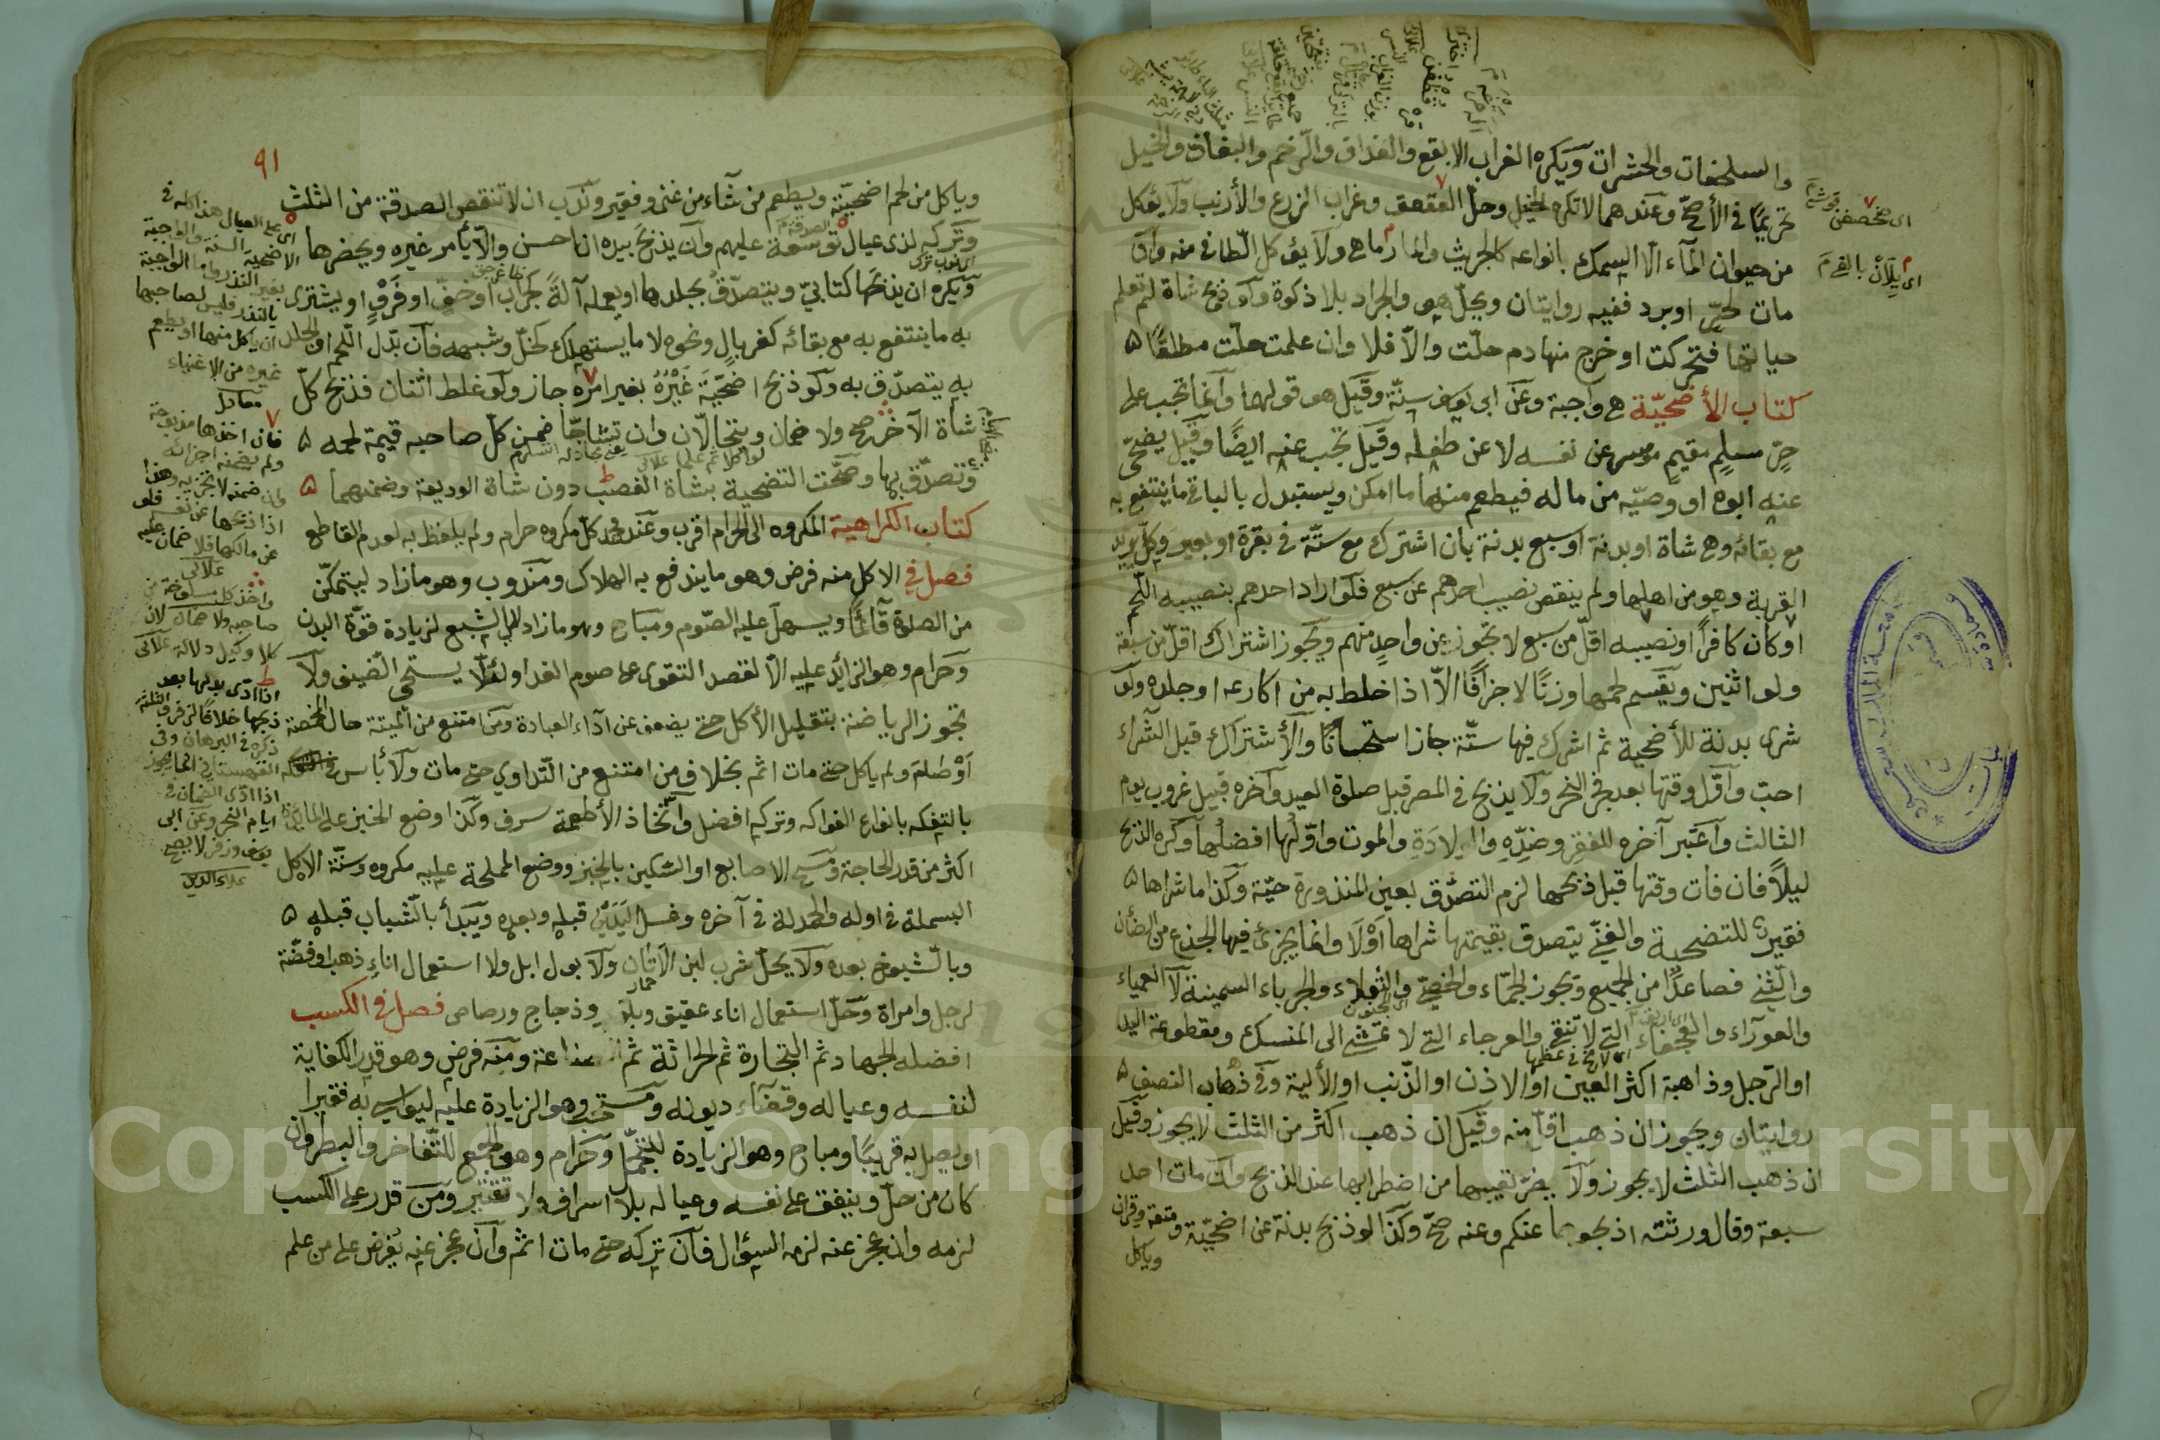 والسلحفات والحشرات ويكره الغراب الابقع والغداف والرخم والبغاث والخيل
تحريمًا في الأصحّ وعندهما لا تكره الخيل وحلّ العقعق وغراب الزرع والأرنب ولا يؤكل
من حيوان الماء الّا السمك بانواعه كالجريث والمارماهي ولا يؤكل الطافي منه وان
مات لحرّ او برد ففيه روايتان ويحلّ هو والجراد بلا ذكوة ولو ذبح شاة لم تعلم
حياتها فتحركت او خرج منها دم حلّت والّا فلا وان علمت حلّت مطلقًا ٥
كتاب الأضحيّة هي واجبة وعن ابى يوسف سنّة وقيل هو قولهما وانما تجب على
حرّ مسلم مقيم موسر عن نفسه لا عن طفله وقيل تجب عنه ايضًا وقيل يضحّى
عنه ابوه او وصيّه من ماله فيطعم منها ما امكن ويستبدل بالباقي ما ينتفع به
مع بقائه وهي شاة او بدنة او سبع بدنة بان اشترك مع ستّة في بقرة او بعير وكلّ يريد
القربة وهو من اهلها ولم ينقص نصيب احدهم عن سبع فلو اراد احدهم بنصيبه اللّحم
او كان كافرًا او نصيبه اقلّ من سبع لا تجوز عن واحد منهم ويجوز اشتراك اقلّ من سبعة
ولو اثنين ويقسم لحمها وزنًا لا جزافًا الّا اذا خلط به من اكارعه او جلده ولو
شرى بدنة للأضحية ثم اشرك فيها ستّة جاز استحسانًا والأشتراك قبل الشراء
احبّ واوّل وقتها بعد فجر النحر ولا يذبح في المصر قبل صلوة العيد وآخره قبيل غروب يوم
الثالث واعتبر آخره للفقر وضدّه والولادة والموت واوّلها افضلها وكره الذبح
ليلًا فان فات وقتها قبل ذبحها لزم التصدّق بعين المنذورة حيّة وكذا ما شراها ٥
فقير للتضحية والغنّى يتصدق بقيمتها شراها اوّلا وانما يجزئ فيها الجذع من الضأن
والثني فصاعدًا من الجميع وتجوز الجمّاء والخصيّ والثولاء والجرباء السمينة لا العمياء
والعوراء والعجفاء التي لا تنقى والعرجاء التي لا تمشى الى المنسك ومقطوعة اليد
او الرّجل وذاهبة اكثر العين او الاذن او الذّنب او الألية وفي ذهاب النصف ٥
روايتان ويجوز ان ذهب اقل منه وقيل ان ذهب اكثر من الثلث لا يجوز وقيل
ان ذهب الثلث لا يجوز ولا يضرّ تعيبها من اضطرابها عند الذبح وان مات احد
سبعة وقال ورثته اذبحوها عنكم وعنه صحّ وكذا لو ذبح بدنة عن اضحيّة ومتعة وقران
وياكل
٩١
وياكل من لحم اضحيّته ويطعم من شاء من غنى وفقير وندب ان لا تنقص الصدقة من الثلث
وتركه لذى عيال توسعة عليهم وان يذبح بيده ان احسن والّا يأمر غيره ويحضرها
ويكره ان يذبحها كتابيّ ويتصدّق بجلدها او يعمله آلةً كجراب او خفّ او فرو او يشترى
به ما ينتفع به مع بقائه كغربال ونحوه لا ما يستهلك كخلّ وشبهه فان بدّل اللّحم او الجلد
به يتصدّق به ولو ذبح اضحيّة غيره بغير امره جاز ولو غلط اثنان فذبح كلّ
شاة الآخر صحّ ولا ضمان ويتحالّان وان تشاحّا ضمن كلّ صاحبه قيمة لحمه ٥
وتصدّق بها وصحّت التضحية بشاة الغصب دون شاة الوديعة وضمنهما ٥
كتاب الكراهية المكروه الى الحرام اقرب وعند محمد كلّ مكروه حرام ولم يلفظ به لعدم القاطع
فصل في الاكل منه فرض وهو ما يندفع به الهلاك ومندوب وهو ما زاد ليتمكّن
من الصلوة قائمًا ويسهل عليه الصّوم ومباح وهو ما زاد الى الشبع لزيادة قوّة البدن
وحرام وهو الزائد عليه الّا لقصد التقوى على صوم الغد او لئلّا يستحى الضيف ولا
تجوز الرياضة بتقليل الأكل حتى يضعف عن آداء العبادة ومن امتنع من الميتة حال المخمصة
او صام ولم ياكل حتى مات اثم بخلاف من امتنع من التّداوي حتى مات ولا بأس
بالتفكه بانواع الفواكه وتركه افضل واتّخاذ الأطعمة سرف وكذا وضع الخبز على المائدة
اكثر من قدر الحاجة ومسح الاصابع او السّكين بالخبز ووضع المملحة عليه مكروه وسنّة الاكل
البسملة في اوله والحمدلة في آخره وغسل اليدين قبله وبعده ويبدأ بالشباب قبله ٥
وبالشيوخ بعده ولا يحلّ شرب لبن الأتان ولا بول ابل ولا استعمال اناء ذهب او فضّة
لرجل وامرأة وحلّ استعمال اناء عقيق وبلّور وزجاج ورصاص فصل في الكسب
افضله الجهاد ثم التجارة ثم الحراثة ثم الصناعة ومنه فرض وهو قدر الكفاية
لنفسه وعياله وقضاء ديونه ومستحبّ وهو الزيادة عليه ليواسي به فقيرا
او يصل به قريبًا ومباح وهو الزيادة للتجمّل وحرام وهو الجمع للتّفاخر والبطر وان
كان من حلّ وينفق على نفسه وعياله بلا اسراف ولا تقتير ومن قدر على الكسب
لزمه وان عجز عنه لزمه السؤال فان تركه حتى مات اثم وان عجز عنه يفرض على من علم
هذا كله في
الاضحية السنة والواجبة
بغير النذر واما الواجبة
بالنذر فليس لصاحبها
ان ياكل منها او يطعم
غيره من الاغنياء
فان اخذها مذبوحة
ولم يضمنه اجزأته
اذا ذبحها عن نفسه
عن مالكها فلا ضمان عليه
علائى
صاحبه ولا ضمان لان
كلا وكيل دلالة علائى
اذا ادّى بدلها بعد
ذبحها خلافًا لزفر والثلثة
ذكره في البرهان وفي
اذا ادّى الضمان في
ايام النحر وعن ابى
يوسف وزفر لا يصح
علاء الدين
Copyright © King Saud University